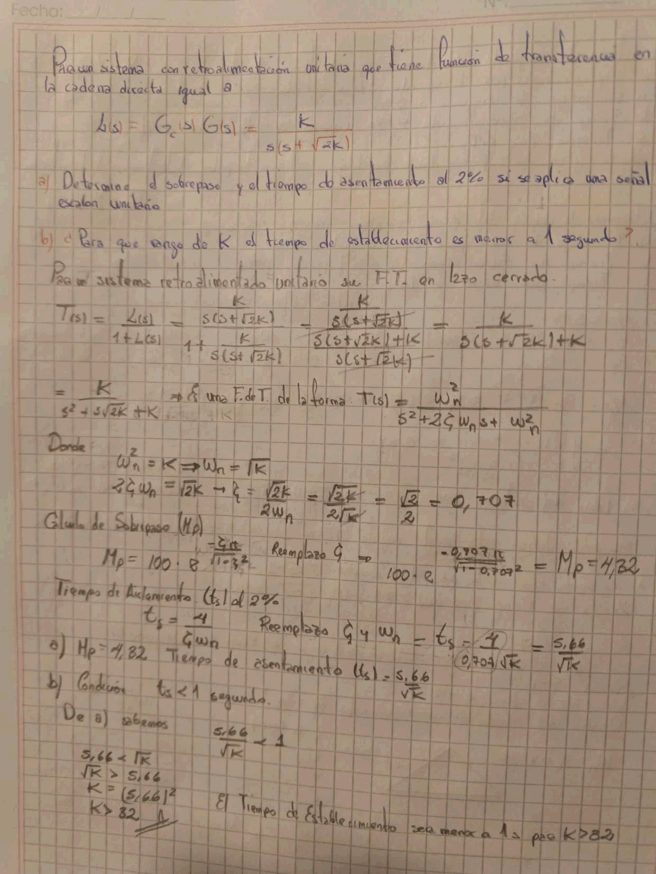 Fecha: / /
Para un sistema con retroalimentación unitaria que tiene función de transferencia en
la cadena directa igual a
L(s) = Gc(s) G(s) = K / s(s + √2K)
a) Determine el sobrepaso y el tiempo de asentamiento al 2% si se aplica una señal
escalon unitario
b) ¿Para que rango de K el tiempo de establecimiento es menor a 1 segundo?
Para sistema retroalimentado unitario su F.T. en lazo cerrado.
T(s) = L(s) / 1+L(s) = (K / s(s+√2K)) / (1 + K / s(s+√2K)) = (K / s(s+√2K)) / ((s(s+√2K)+K) / s(s+√2K)) = K / s(s+√2K)+K
= K / s² + s√2K + K → Es una F. de T. de la forma T(s) = ωn² / s² + 2ζωn s + ωn²
Donde
ωn² = K → ωn = √K
2ζωn = √2K → ζ = √2K / 2ωn = √2K / 2√K = √2 / 2 = 0,707
Calculo de Sobrepaso (Mp)
Mp = 100 · e^(-ζπ / √1-ζ²) Reemplazo ζ → 100 · e^(-0,707π / √1-0,707²) = Mp = 4,32
Tiempo de (ts) al 2%
ts = 4 / ζωn Reemplazo ζ y ωn = ts = 4 / 0,707√K = 5,66 / √K
a) Mp = 4,32 Tiempo de asentamiento (ts) = 5,66 / √K
b) Condición ts < 1 segundo.
De a) sabemos 5,66 / √K < 1
5,66 < √K
√K > 5,66
K = (5,66)²
K > 32
El Tiempo de Establecimiento sea menor a 1s para K > 32